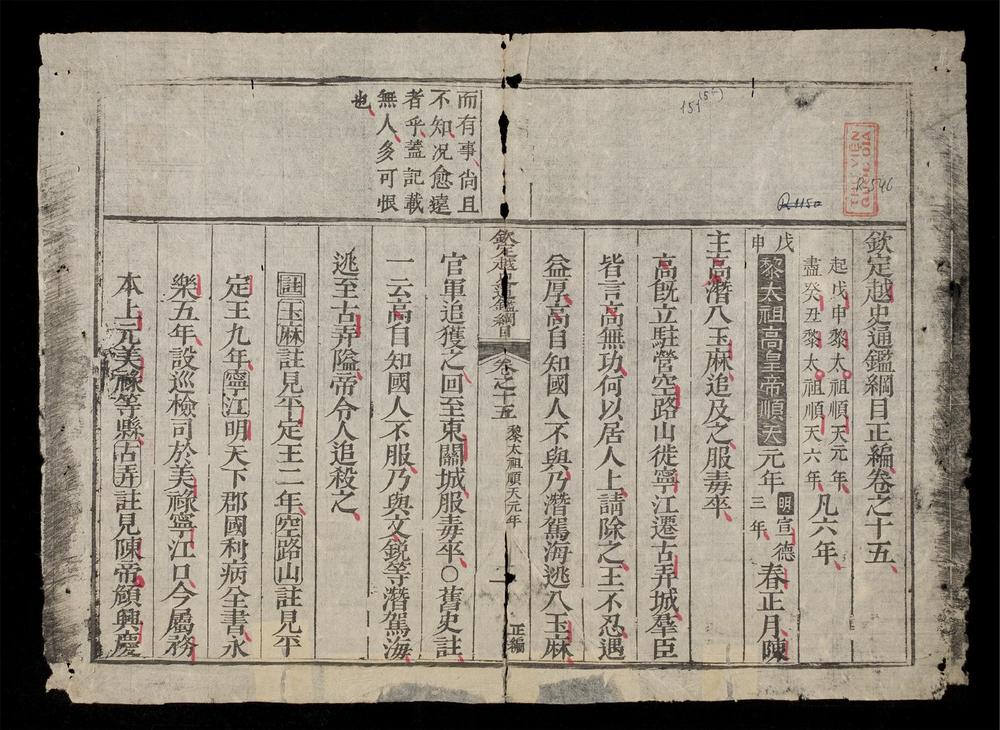 欽定越史通鑑綱目正編卷之十五
起戊申黎太祖順天元年
盡癸丑黎太祖順天六年
凡六年
戊申
黎太祖高皇帝順天元年
明宣德三年
春正月陳
主高潛入玉麻追及之服毒卒
高旣立駐營空路山徙寧江遷古弄城羣臣
皆言高無功何以居人上請除之王不忍遇
益厚高自知國人不與乃潛駕海逃入玉麻
欽定越史通鑑綱目
卷之十五
黎太祖順天元年
一
正編
官軍追獲之回至東關城服毒卒〇舊史註
一云高自知國人不服乃與文銳等潛駕海
逃至古弄隘帝令人追殺之
註玉麻註見平定王二年空路山註見平
定王九年寧江明天下郡國利病全書永
樂五年設巡檢司於美祿寧江口今屬務
本上元美祿等縣古弄註見陳帝頠興慶
而有事尙且
不知况愈遠
者乎蓋記載
無人多可恨
也
151
(5-)
THƯ VIỆN
QUỐC GIA
R-546
R1150